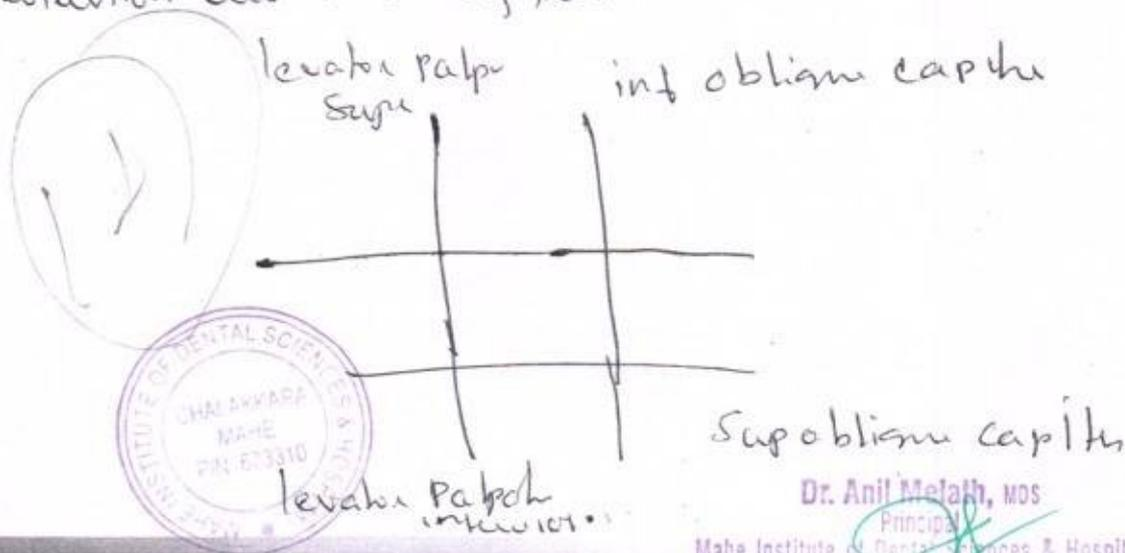 levator Palpe
Supe
inf oblique capitu
Sup oblique capitu
levator Palpeb
inferior.
MAHE INSTITUTE OF DENTAL SCIENCES & HOSPITAL
CHALAKKARA
MAHE
PIN 673310
Dr. Anil Melath, MDS
Principal
Mahe Institute of Dental Sciences & Hospital